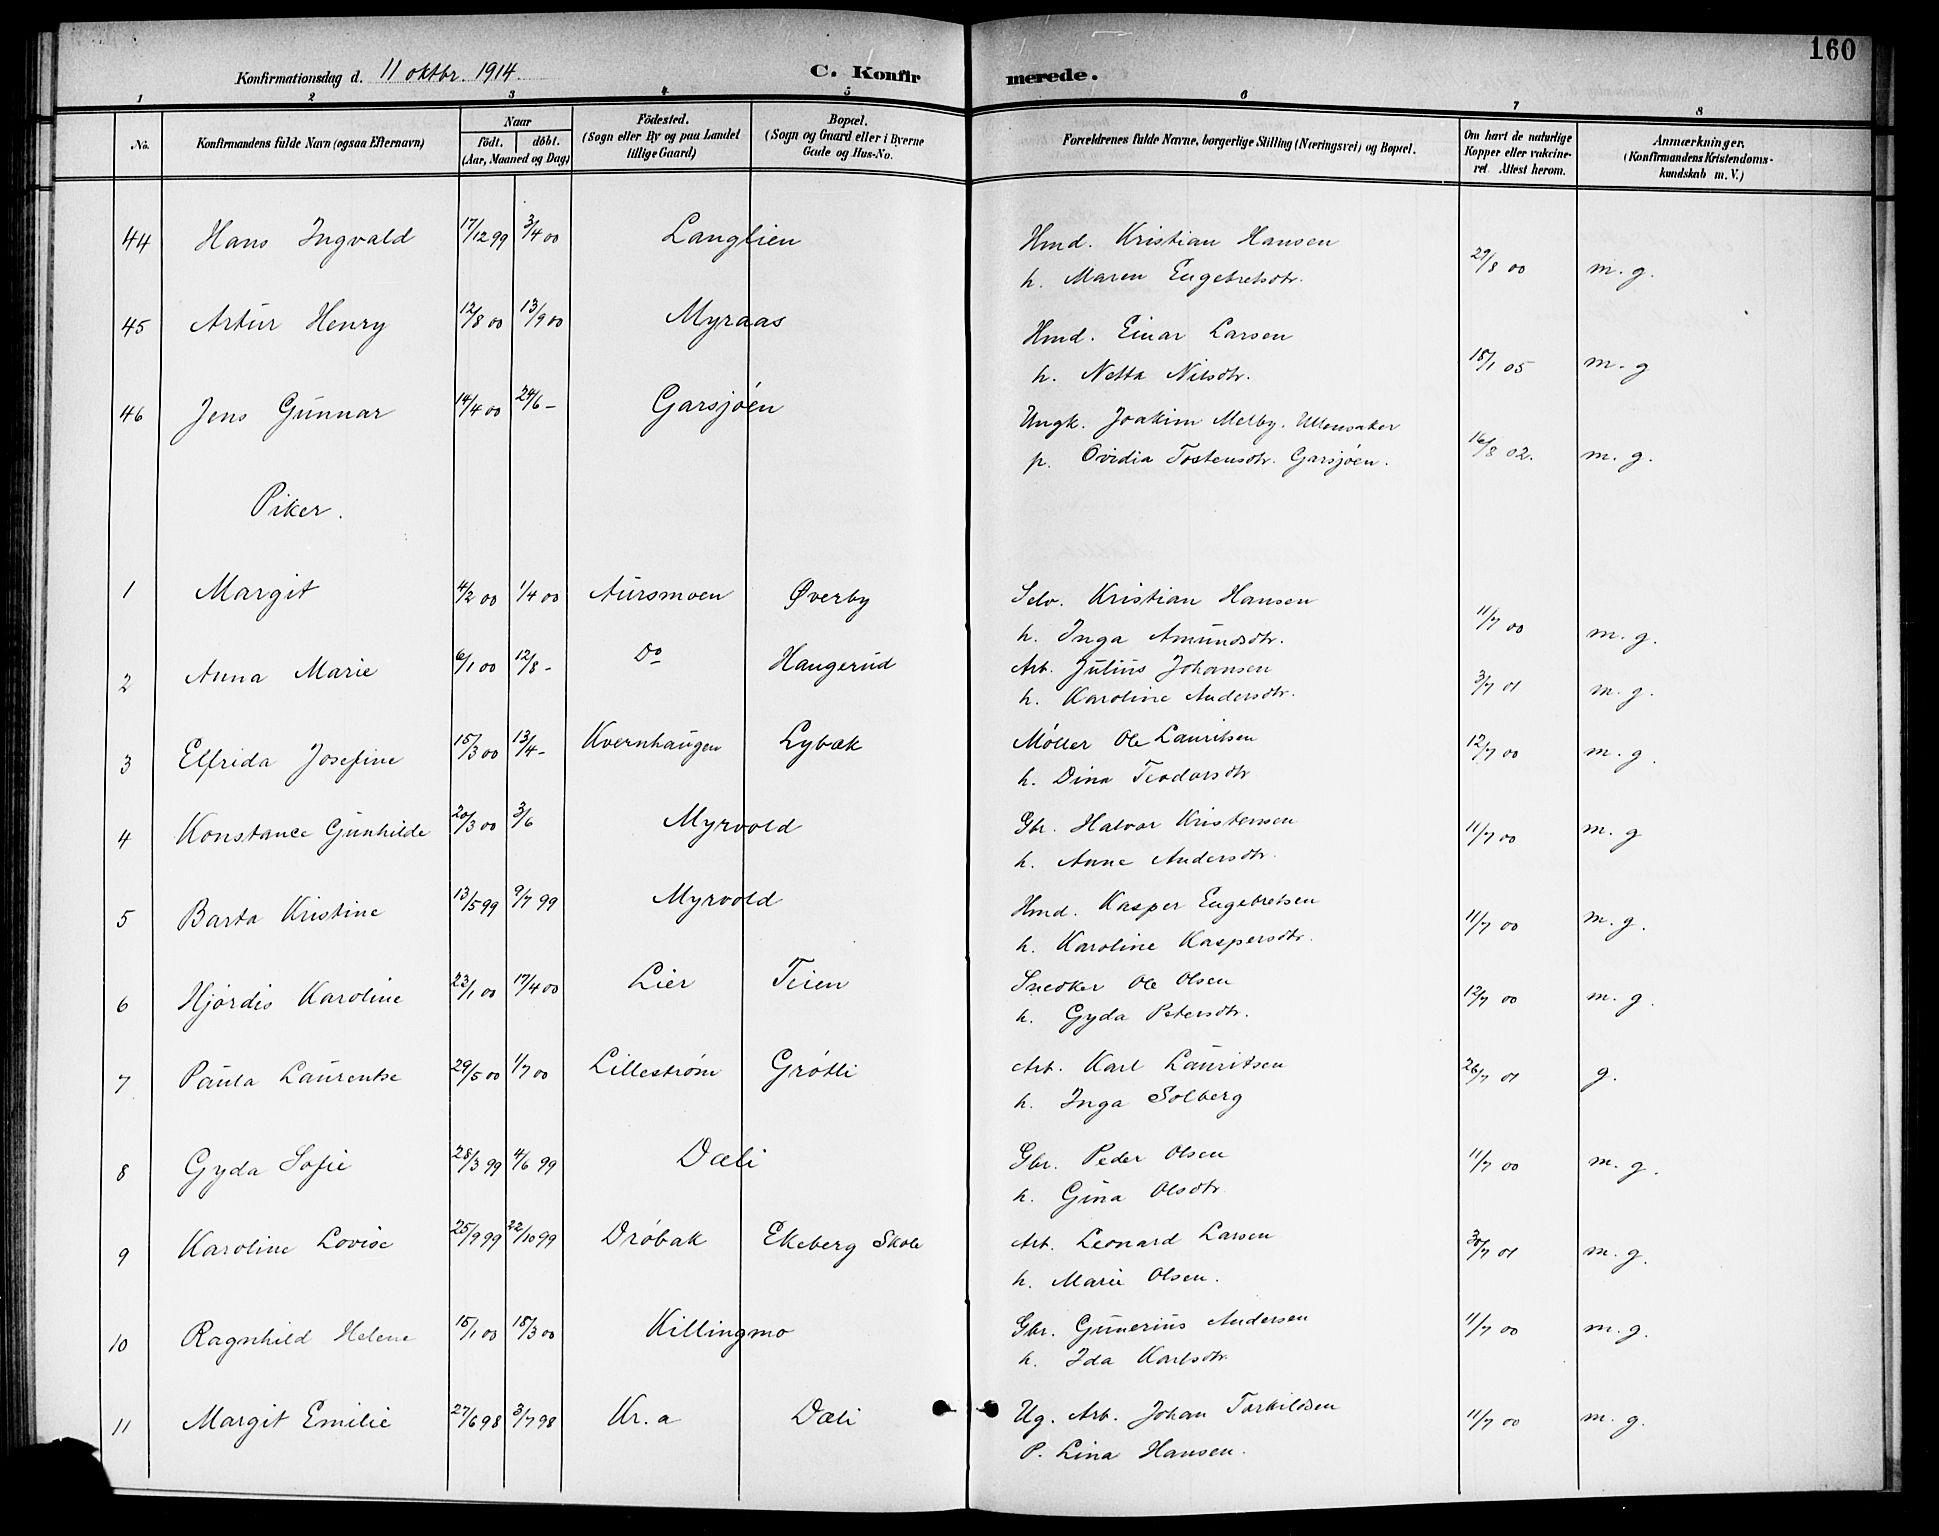 160
Konfirmationsdag d. 11 oktbr. 1914. C. Konfirmerede.
1 2 3 4 5 6 7 8
No. Konfirmandens fulde Navn (ogsaa Efternavn) Naar födt. döbt. (Aar, Maaned og Dag) Födested. (Sogn eller By og paa Landet tillige Gaard) Bopæl. (Sogn og Gaard eller i Byerne Gade og Hus-No. Forældrenes fulde Navne, borgerlige Stilling (Næringsvei) og Bopæl. Om havt de naturlige Kopper eller vakcineret. Attest herom. Anmærkninger. (Konfirmandens Kristendomskundskab m. V.)
44 Hans Ingvald 17/12 99 3/4 00 Langlien Hmd. Kristian Hansen
h. Maren Engebretsdtr. 29/8 00 m. g.
45 Artur Henry 12/8 00 13/9 00 Myraas Hmd. Einar Larsen
h. Netta Nilsdtr. 18/1 05 m. g
46 Jens Gunnar 14/4 00 24/6 – Garsjøen Ungk. Joakim Melby, Ullensaker
p. Ovidia Tostensdtr. Garsjøen. 16/8 02. m. g.
Piker.
1 Margit 4/2 00 1/4 00 Aursmoen Øverby Selv. Kristian Hansen
h. Inga Amundsdtr. 11/7 00 m. g.
2 Anna Marie 6/1 00 12/8 – Do Haugerud Arb. Julius Johansen
h. Karoline Andersdtr. 3/7 01 m. g.
3 Elfrida Josefine 15/3 00 13/4 – Kvernhaugen Lybæk Møller Ole Lauritsen
h. Dina Teodorsdtr 12/7 00 m. g.
4 Konstance Gunhilde 20/3 00 3/6 Myrvold Gbr. Halvor Kristensen
h. Anne Andersdtr. 11/7 00 m. g
5 Barta Kristine 13/5 99 9/7 99 Myrvold Hmd. Kasper Engebretsen
h. Karoline Kaspersdtr. 11/7 00 m. g.
6 Hjørdis Karoline 23/1 00 17/4 00 Lier Teien Snedker Ole Olsen
h. Gyda Petersdtr. 12/7 00 m. g.
7 Paula Laurentse 29/5 00 1/7 00 Lillestrøm Grøtli Arb. Karl Lauritsen
h. Inga Solberg 26/7 01 g.
8 Gyda Sofie 28/3 99 4/6 99 Dæli Gbr. Peder Olsen
h. Gina Olsdtr. 11/7 00 m. g.
9 Karoline Lovise 25/9 99 22/10 99 Drøbak Ekeberg Skole Arb. Leonard Larsen
h. Marie Olsen. 30/7 01 m. g.
10 Ragnhild Helene 15/1 00 18/3 00 Killingmo Gbr. Gunerius Andersen
h. Ida Karlsdtr. 11/7 00 m. g.
11 Margit Emilie 27/6 98 3/7 98 Kr.a Dæli Ug. Arb. Johan Torkildsen
P. Lina Hansen. 11/7 00 m. g.